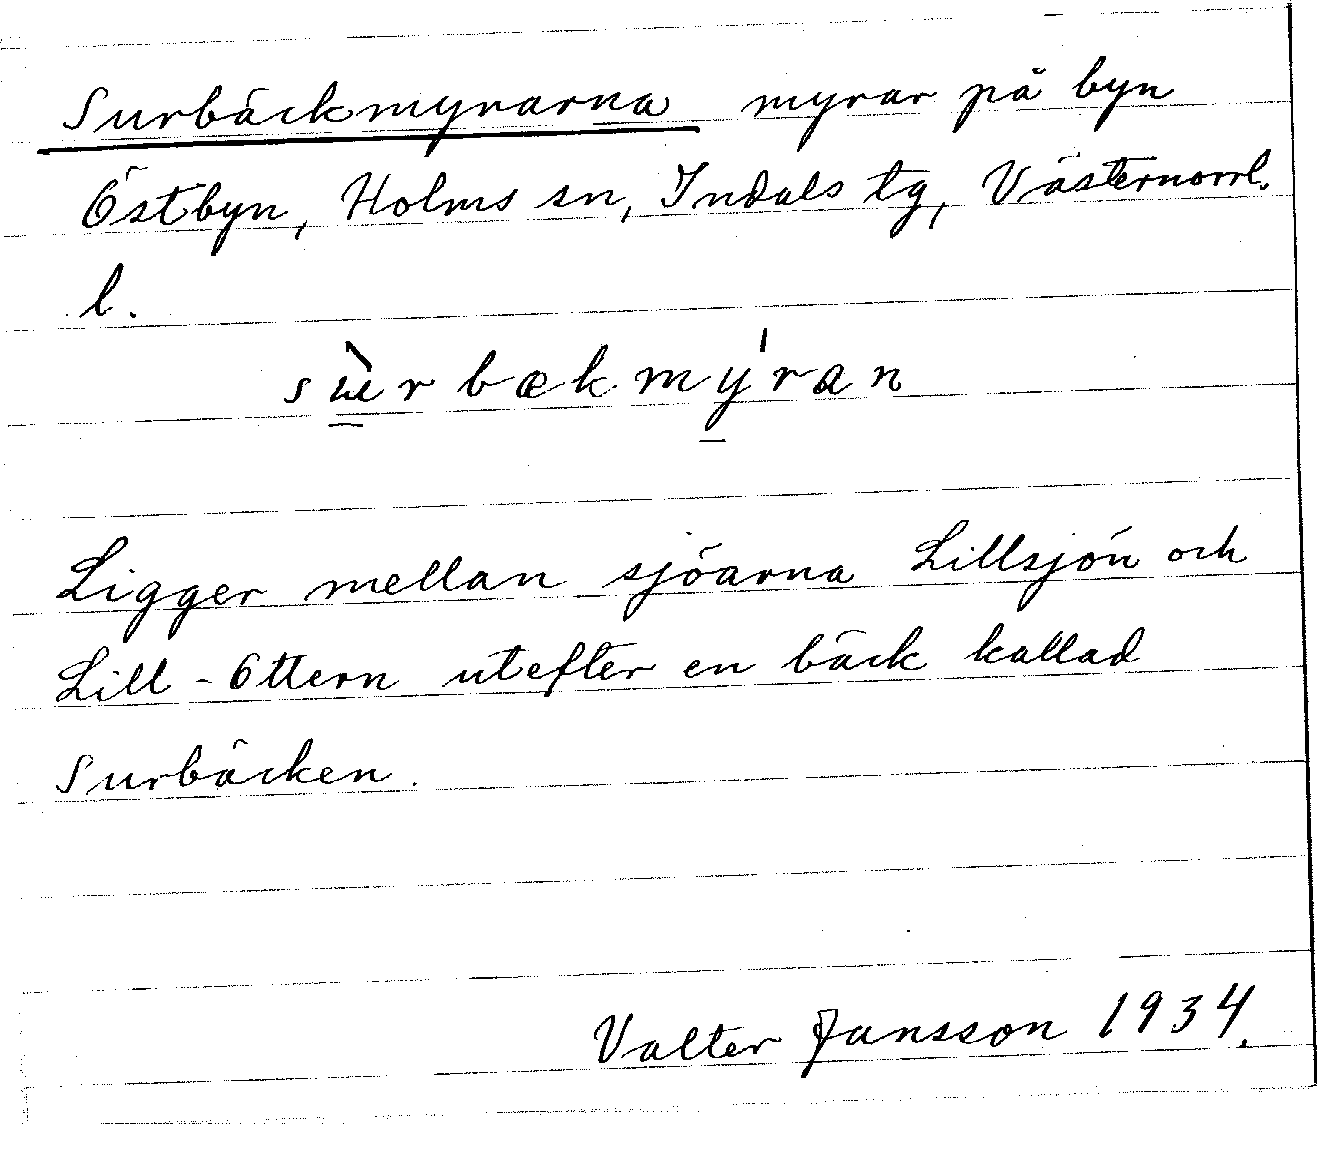 Surbäckmyrarna myrar på byn
Östbyn, Holms sn, Indals tg, Västernorrl.
l.
sùrbækmýran
Ligger mellan sjöarna Lillsjön och
Lill-Ottern utefter en bäck kallad
Surbäcken.
Valter Jansson 1934.